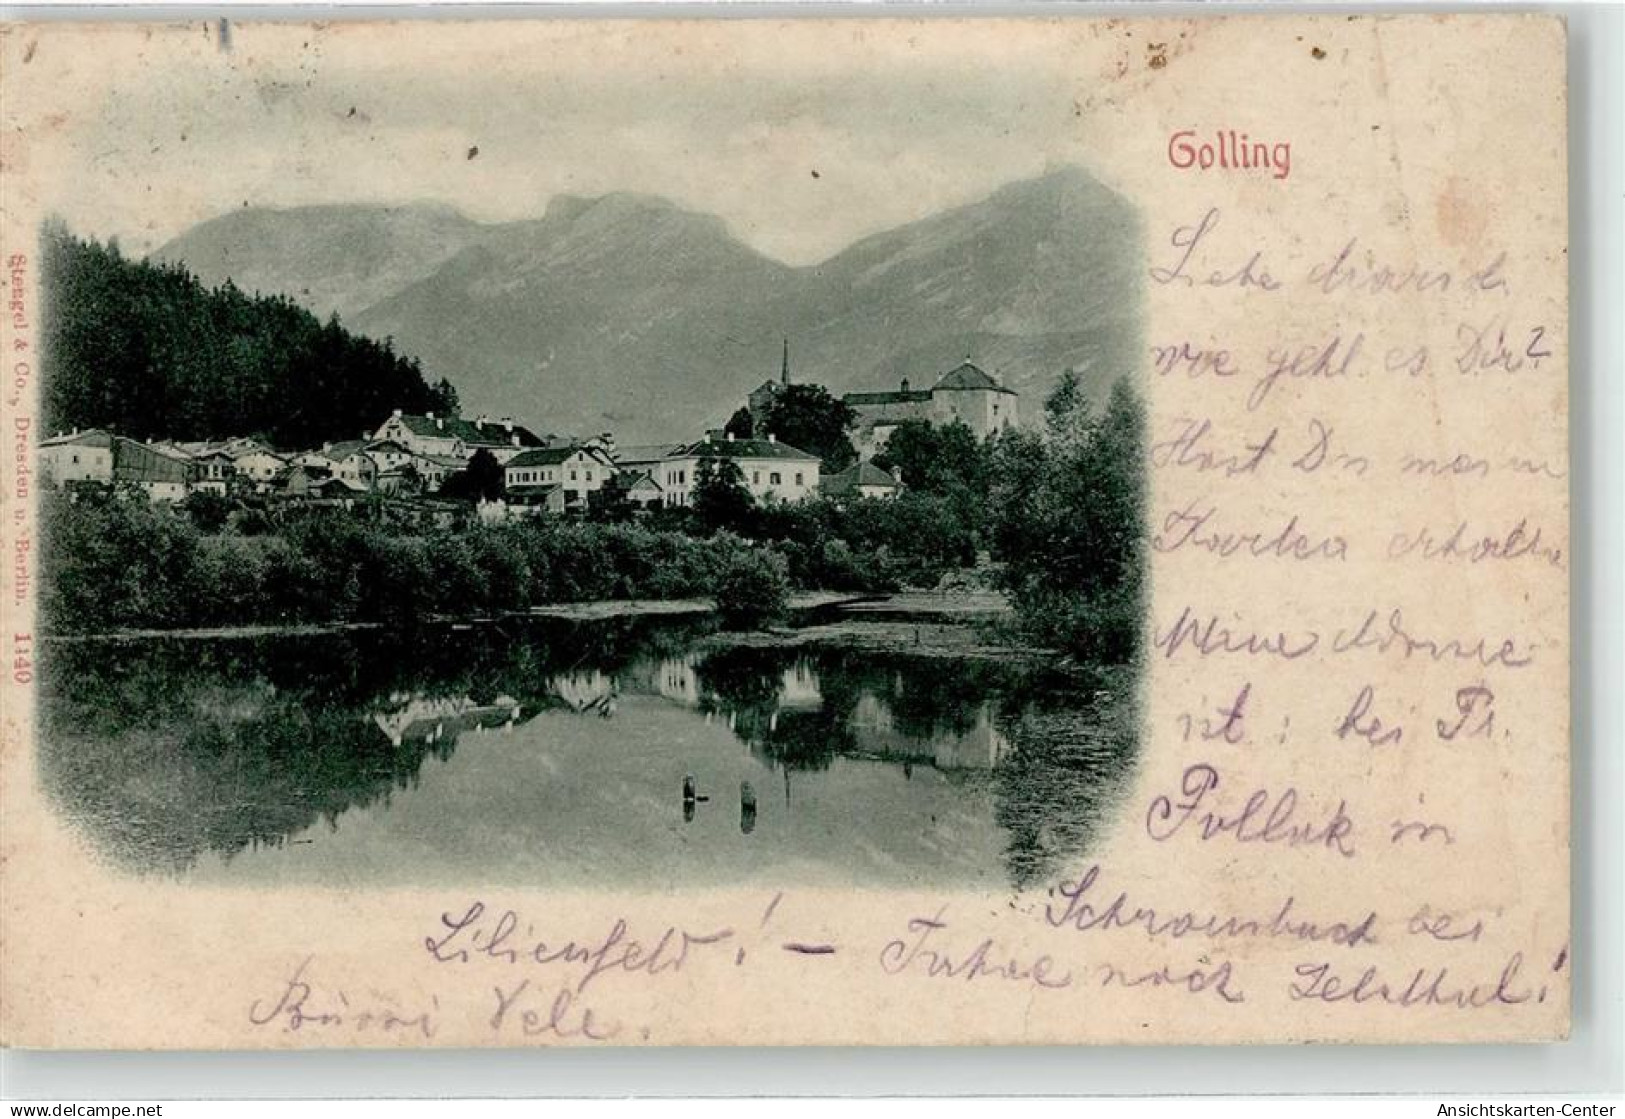 Golling
Liebe
wie geht es Dir?
Hast Du meine
Karten erhalten
Meine Adresse
ist : bei Fr.
Pollak in
Schrambach bei
Lilienfeld! — Fahre nach Zelsthal!
Bussi Vele.
Stengel & Co., Dresden u. Berlin. 1140
www.delcampe.net
Ansichtskarten-Center